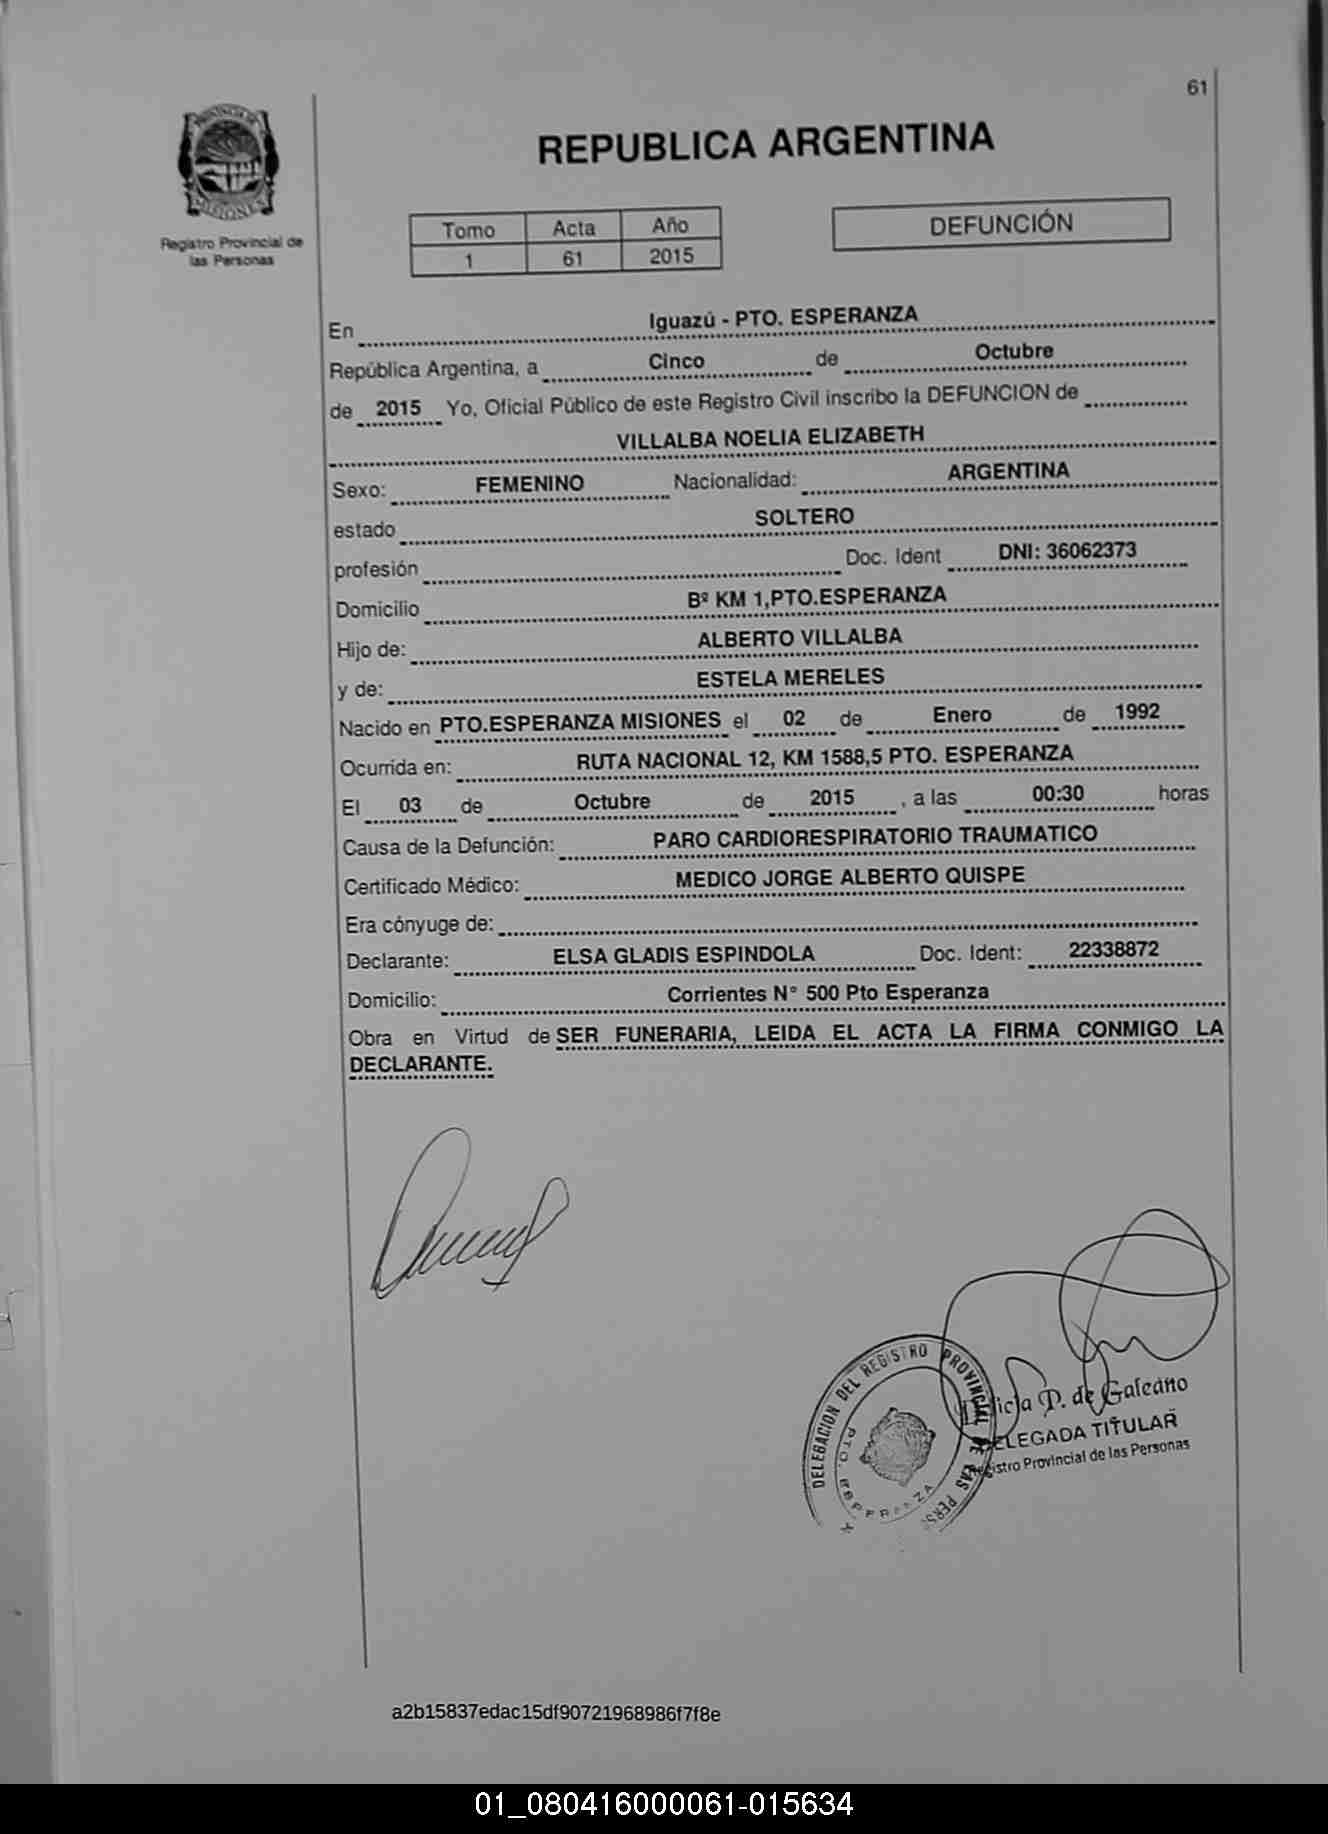 61
PROVINCIA DE
MISIONES
Registro Provincial de
las Personas
REPUBLICA ARGENTINA
Tomo Acta Año
1 61 2015
DEFUNCIÓN
En Iguazú - PTO. ESPERANZA
República Argentina, a Cinco de Octubre
de 2015 Yo, Oficial Público de este Registro Civil inscribo la DEFUNCION de
VILLALBA NOELIA ELIZABETH
Sexo: FEMENINO Nacionalidad: ARGENTINA
estado SOLTERO
profesión Doc. Ident DNI: 36062373
Domicilio Bº KM 1,PTO.ESPERANZA
Hijo de: ALBERTO VILLALBA
y de: ESTELA MERELES
Nacido en PTO.ESPERANZA MISIONES el 02 de Enero de 1992
Ocurrida en: RUTA NACIONAL 12, KM 1588,5 PTO. ESPERANZA
El 03 de Octubre de 2015 , a las 00:30 horas
Causa de la Defunción: PARO CARDIORESPIRATORIO TRAUMATICO
Certificado Médico: MEDICO JORGE ALBERTO QUISPE
Era cónyuge de:
Declarante: ELSA GLADIS ESPINDOLA Doc. Ident: 22338872
Domicilio: Corrientes N° 500 Pto Esperanza
Obra en Virtud de SER FUNERARIA, LEIDA EL ACTA LA FIRMA CONMIGO LA
DECLARANTE.
DELEGACION DEL REGISTRO PROVINCIAL DE LAS PERS
PTO. ESPERANZA
P. de Galeano
DELEGADA TITULAR
Registro Provincial de las Personas
a2b15837edac15df90721968986f7f8e
01_080416000061-015634